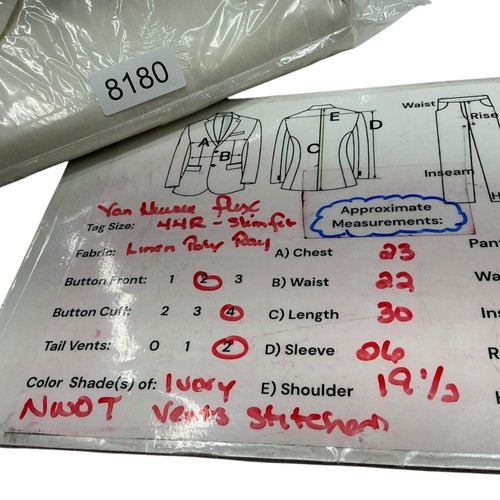 8180
Waist
Rise
A
B
C
D
E
Inseam
H
Van Heusen flex
Tag Size: 44R - Slim fit
Approximate
Measurements:
Fabric: Linen Poly Ray
A) Chest 23
Pant
Button Front: 1 2 3
B) Waist 22
Wa
Button Cuff: 2 3 4
C) Length 30
Ins
Tail Vents: 0 1 2
D) Sleeve 06
R
Color Shade(s) of: Ivory
E) Shoulder 19 1/2
H
NWOT Vents Stitched